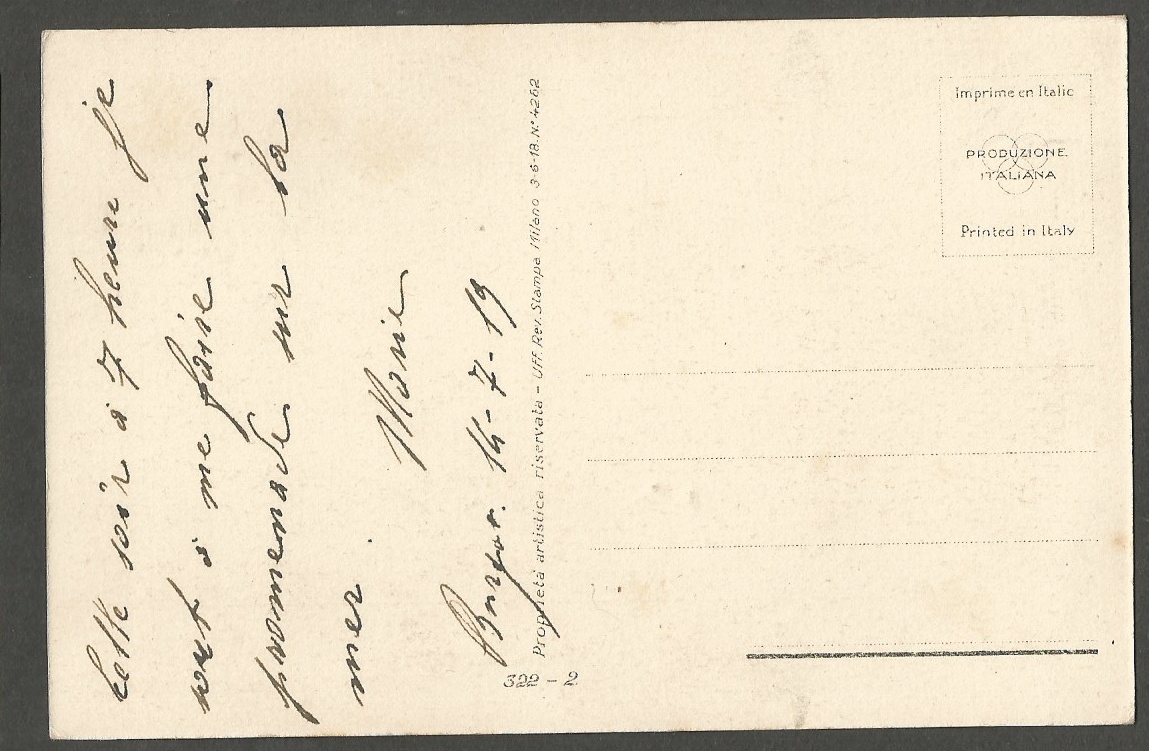 Cette soir à 7 heure je
sort à me faire une
promenade sur la
mer.
Marie
14-7-19
Proprietà artistica riservata - Uff. Rev. Stampa Milano 3-6-18. N° 4262
322 - 2
Imprime en Italie
PRODUZIONE
ITALIANA
Printed in Italy